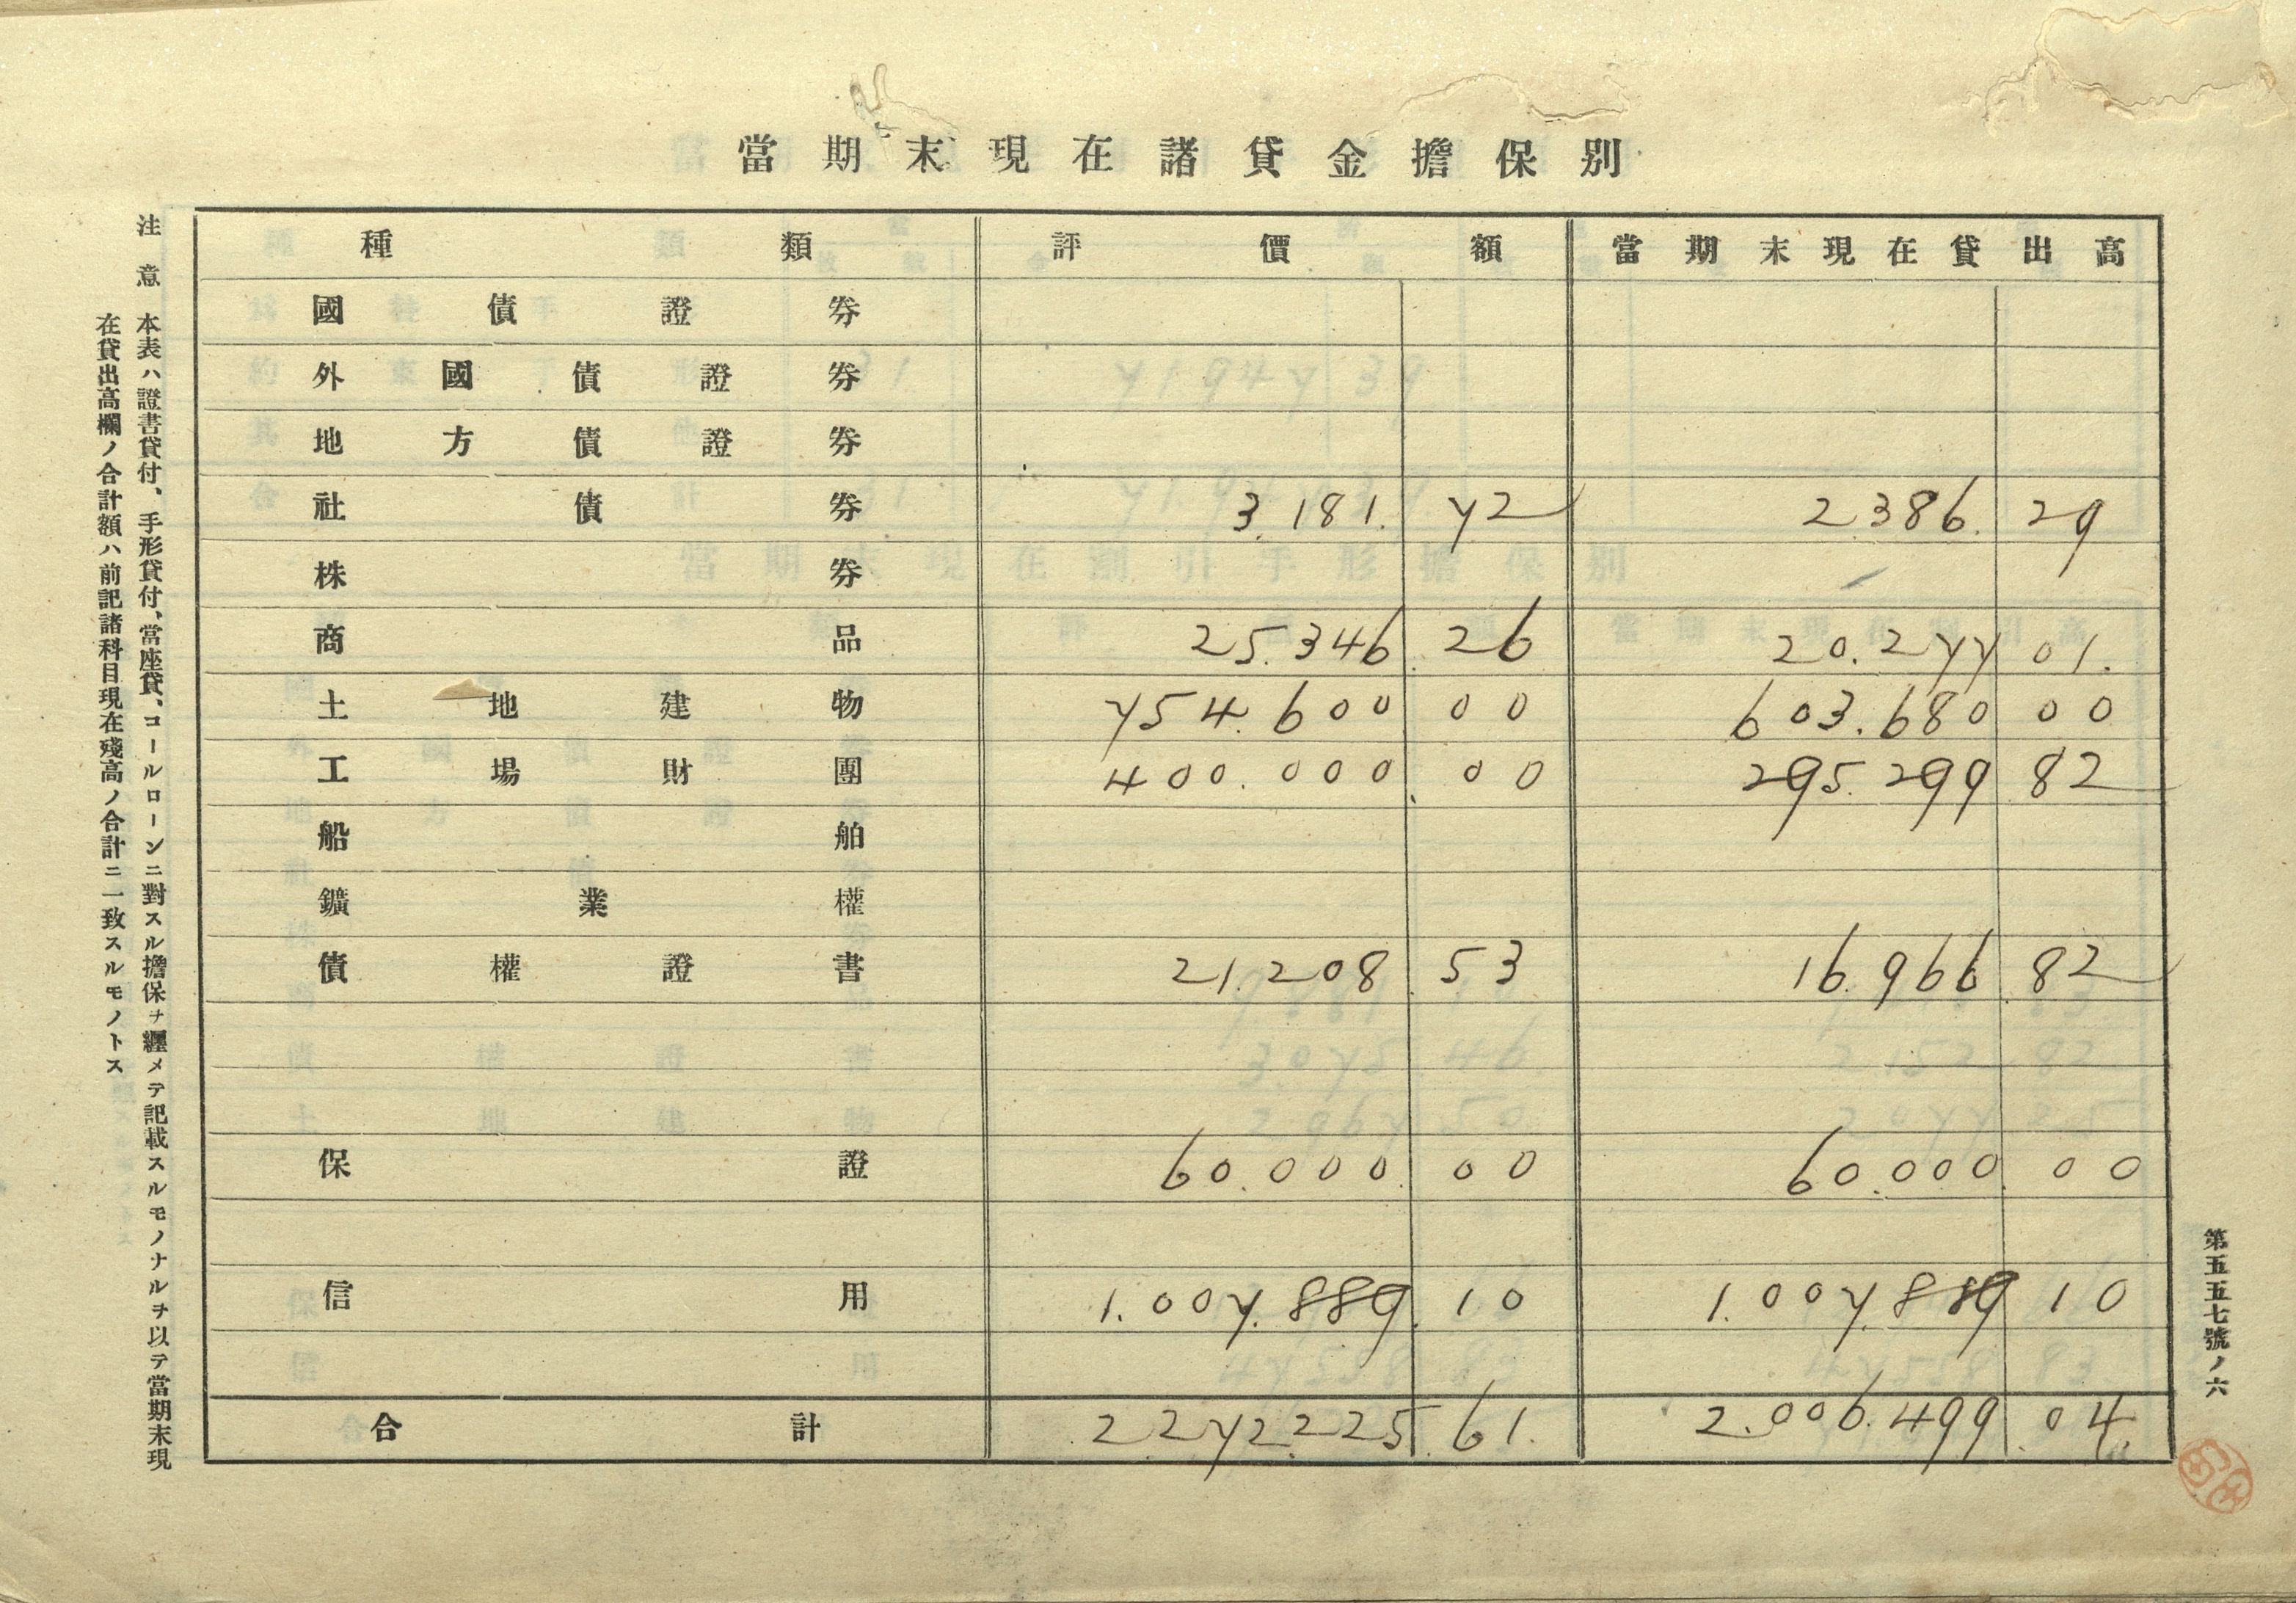 當期末現在諸貸金擔保別
種類 評價額 當期末現在貸出高
國債證券
外國債證券
地方債證券
社債券 3.181.72 2.386.29
株券
商品 25.346.26 20.277.01
土地建物 754.600.00 603.680.00
工場財團 400.000.00 295.299.82
船舶
鑛業權
債權證書 21.208.53 16.966.82
保證 60.000.00 60.000.00
信用 1.007.889.10 1.007.889.10
合計 2272.225.61 2.006.499.04
注意 本表ハ證書貸付、手形貸付、當座貸、コールローンニ對スル擔保ヲ纒メテ記載スルモノナルヲ以テ當期末現
在貸出高欄ノ合計額ハ前記諸科目現在殘高ノ合計ニ一致スルモノトス
第五五七號ノ六